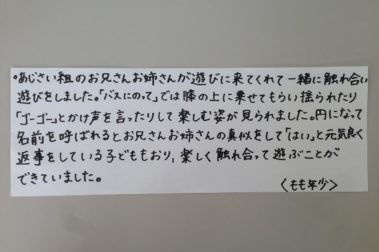 ・あじさい組のお兄さんお姉さんが遊びに来てくれて一緒に触れ合い
遊びをしました。「バスにのって」では膝の上に乗せてもらい揺られたり
「ゴーゴー」とかけ声を言ったりして楽しむ姿が見られました。円になって
名前を呼ばれるとお兄さんお姉さんの真似をして「はい」と元気良く
返事をしている子どももおり、楽しく触れ合って遊ぶことが
できていました。
〈もも年少〉